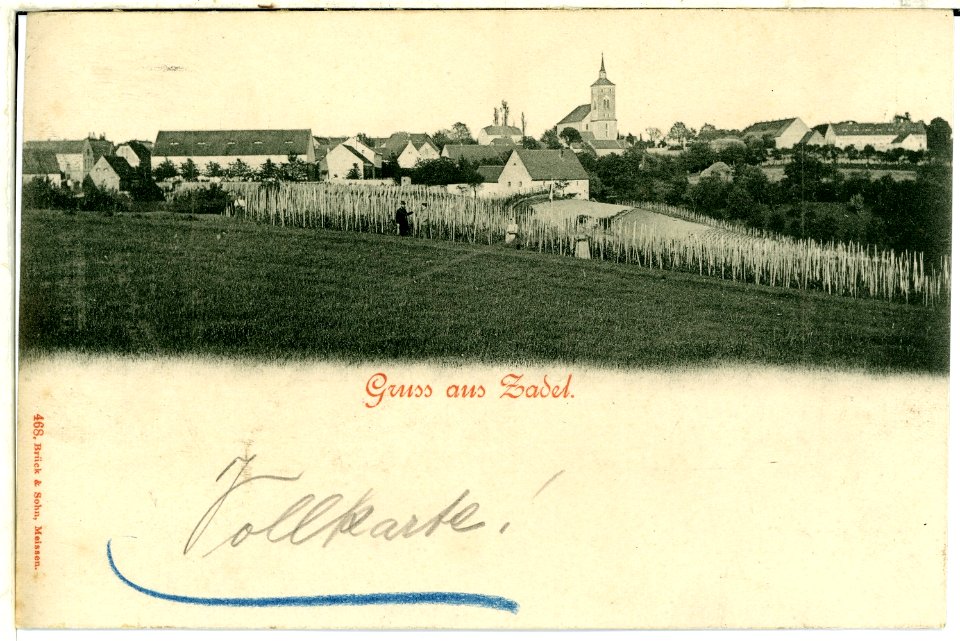 Gruss aus Zadel.
468, Brück & Sohn, Meissen.
Vollkarte!